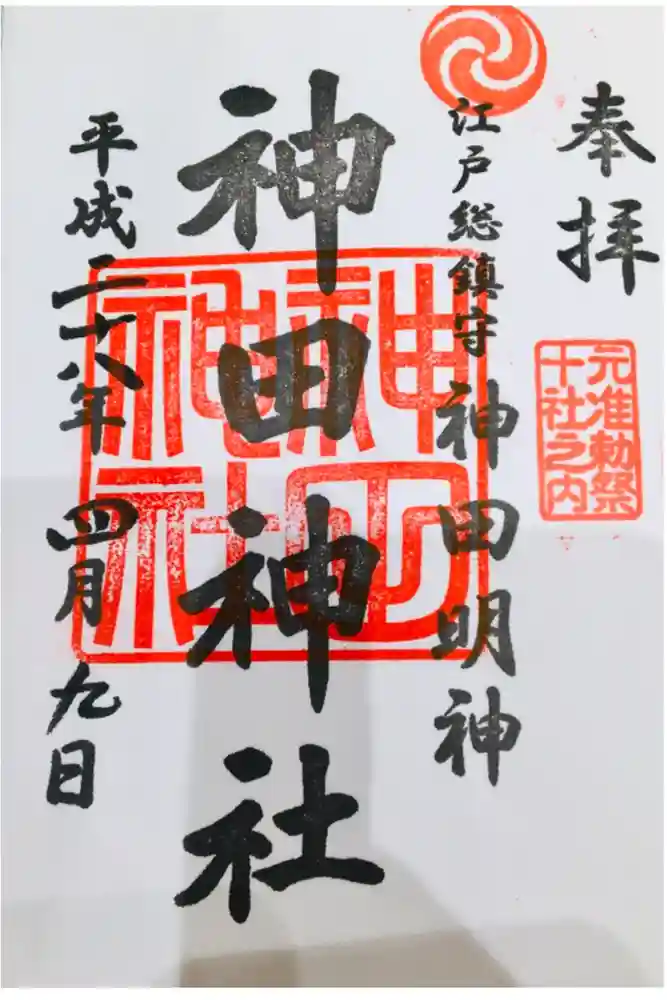 奉拝
元准勅祭
十社之内
江戸総鎮守 神田明神
神田神社
神田神社
平成二十八年 四月 九日